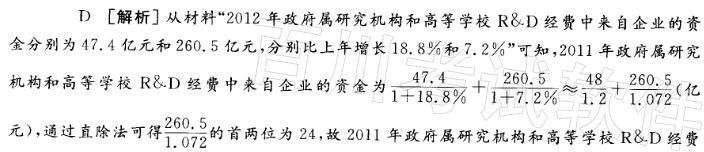 D [解析]从材料“2012年政府属研究机构和高等学校R&D经费中来自企业的资
金分别为47.4亿元和260.5亿元,分别比上年增长18.8%和7.2%”可知,2011年政府属研究
机构和高等学校R&D经费中来自企业的资金为47.4/(1+18.8%)+260.5/(1+7.2%)≈48/1.2+260.5/1.072(亿
元),通过直除法可得260.5/1.072的首两位为24,故2011年政府属研究机构和高等学校R&D经费